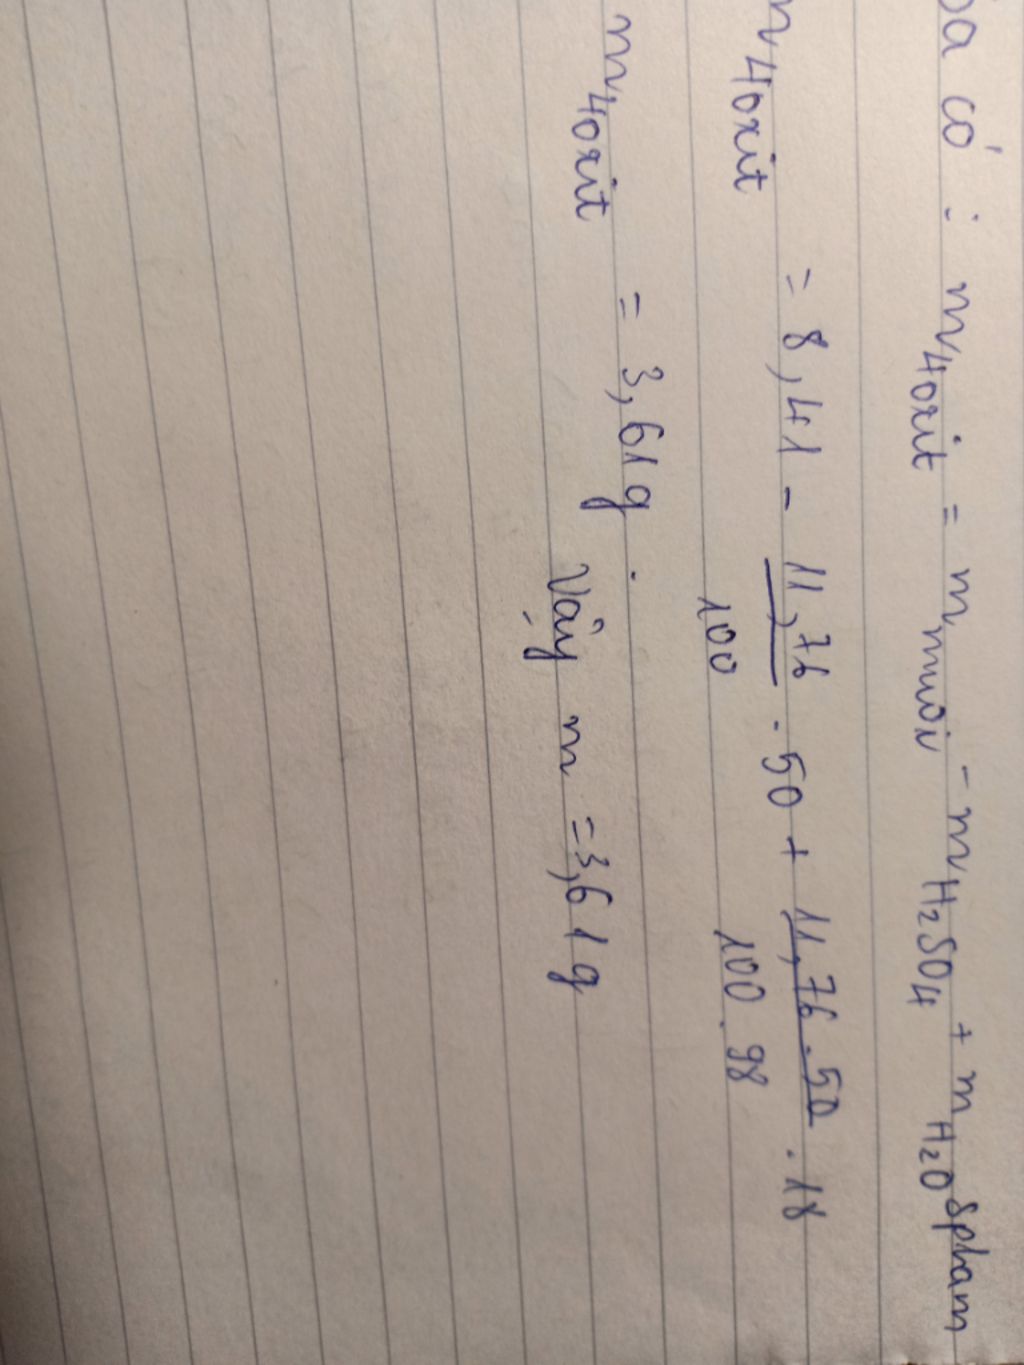 Ta có : m4oxit = mmuối - mH₂SO₄ + mH₂O spham
m4oxit = 8,41 - 11,76/100 . 50 + 11,76 . 50/100 . 98 . 18
m4oxit = 3,61g .
Vậy m = 3,61g